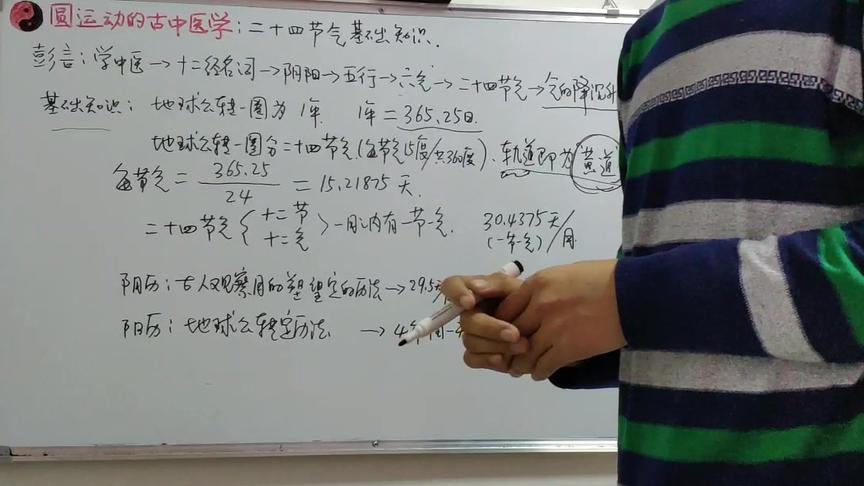 圆运动的古中医学：二十四节气基础知识．
彭言：学中医→十二经名词→阴阳→五行→六气→二十四节气→气的降沉升
基础知识：地球公转一圈为1年． 1年＝365.25日．
地球公转一圈分二十四节气（每节气15度/共360度）．轨道即为"黄道
每节气＝365.25/24＝15.21875天．
二十四节气〈十二节 十二气〉一月内有一节一气． 30.4375天/月（一节一气）
阴历：古人观察月的塑望定的历法→29.5天
阳历：地球公转定历法→4年